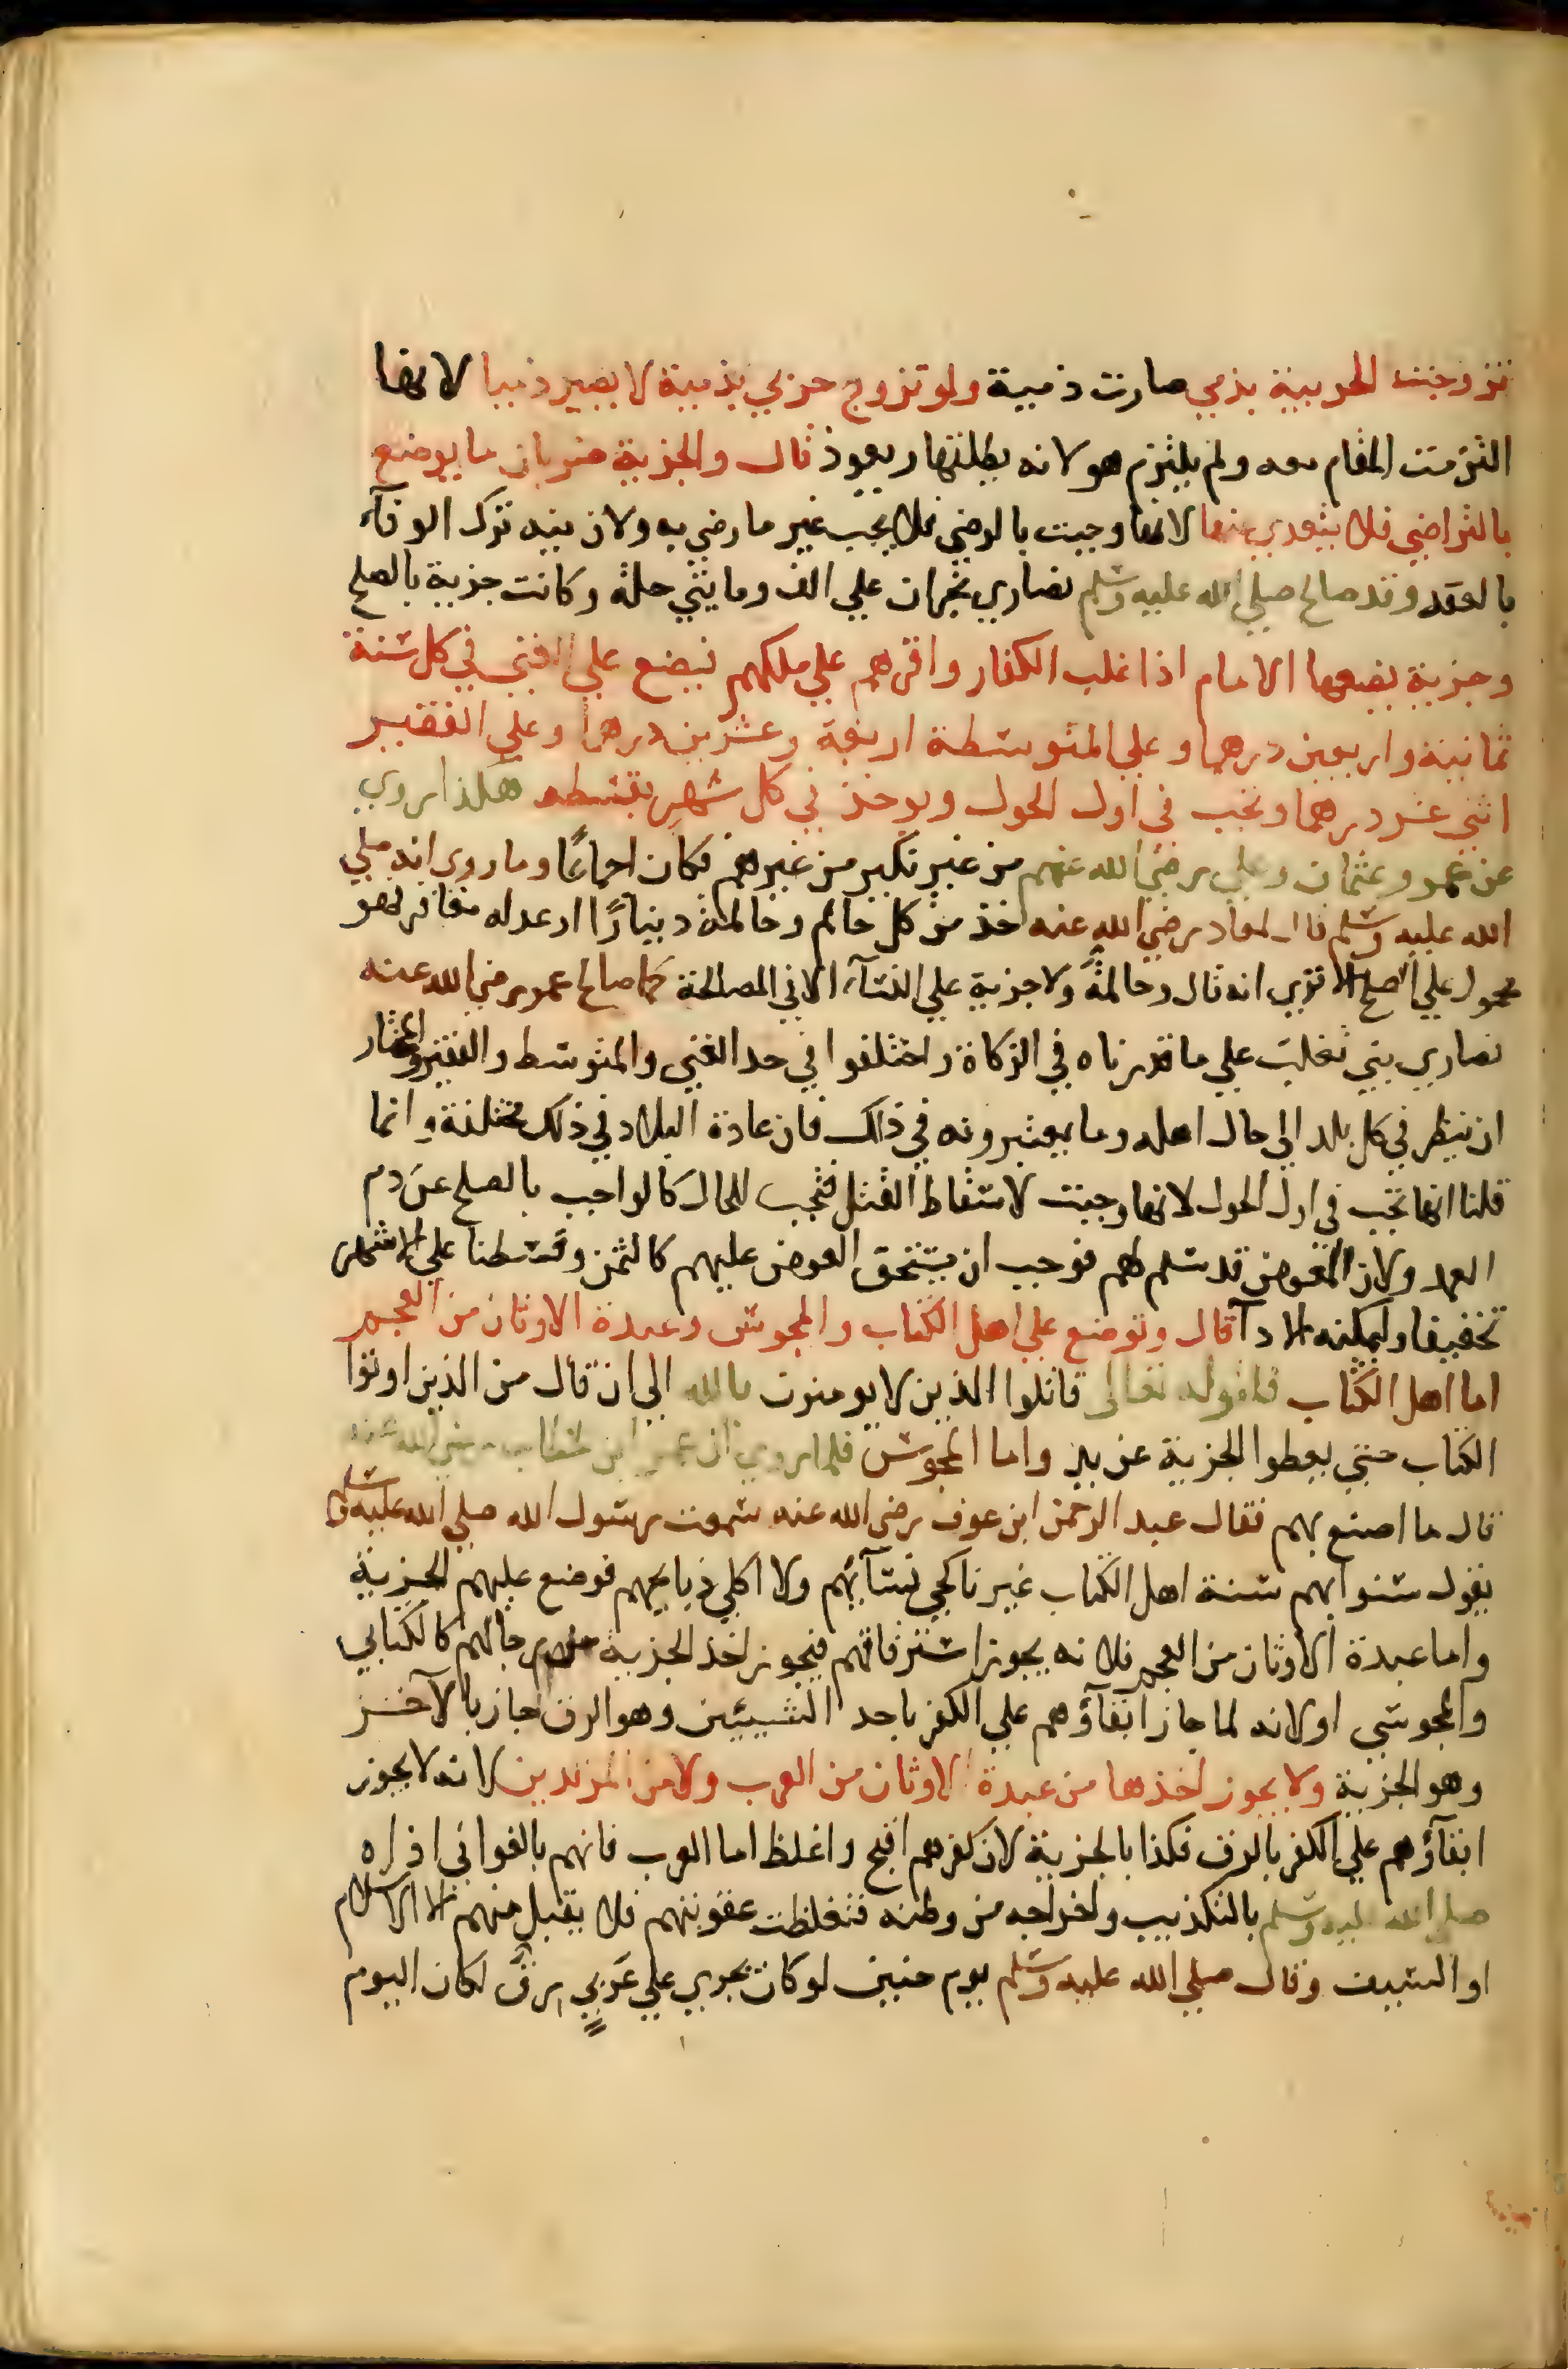 تزوجت الحربية بذمي صارت ذمية ولو تزوج حربي بذمية لا يصير ذميا لانها
التزمت المقام معه ولم يلتزم هو لانه يطلقها ويعود قال والجزية ضربان ما يوضع
بالتراضي فلا يتعدي عنها لانها وجبت بالرضي فلا يجب غير ما رضي به ولان فيه ترك الوفآء
بالعقد وقد صالح صلي الله عليه وسلم نصاري نجران علي الف ومايتي حلة وكانت جزية بالصلح
وجزية يضعها الامام اذا غلب الكفار واقرهم علي ملكهم فيضع علي الغني في كل سنة
ثمانية واربعين درهما وعلي المتوسطة اربعة وعشرين درهما وعلي الفقير
اثني عشر درهما وتجب في اول الحول ويوخذ في كل شهر بقسطه هكذا روي
عن عمر وعثمان وعلي رضي الله عنهم من غير نكير من غيرهم فكان اجماعًا وما روي انه صلي
الله عليه وسلم قال لمعاد رضي الله عنه خذ من كل حالم وحالمة دينارًا او عدله معافر فهو
محمول علي الصلح الا تري انه قال وحالمة ولا جزية علي النسآء الا في المصالحة كما صالح عمر رضي الله عنه
نصاري بني تغلب علي ما قررناه في الزكاة واختلفوا في حد الغني والمتوسط والفقير والمختار
ان ينظر في كل بلد الي حال اهله وما يعتبرونه في ذلك فان عادة البلاد في ذلك مختلفة وانما
قلنا انها تجب في اول الحول لانها وجبت لاسقاط القتل فتجب للحال كالواجب بالصلح عن دم
العمد ولان المعوض قد سلم لهم فوجب ان يستحق العوض عليهم كالثمن وقسطنا علي الاشهر
تخفيفا وليمكنه الادآ قال وتوضع علي اهل الكتاب والمجوس وعبدة الاوثان من العجم
اما اهل الكتاب فلقوله تعالى قاتلوا الذين لا يومنون بالله الي ان قال من الذين اوتوا
الكتاب حتي يعطوا الجزية عن يد واما المجوس فلما روي ان عمر ابن خطاب رضي الله عنه
قال ما اصنع بهم فقال عبد الرحمن ابن عوف رضي الله عنه سمعت رسول الله صلي الله عليه وسلم
يقول سنوا بهم سنة اهل الكتاب غير ناكحي نسآئهم ولا اكلي ذبايحهم فوضع عليهم الجزية
واما عبدة الاوثان من العجم فلانه يجوز استرقاقهم فيجوز اخذ الجزية من رجالهم كالكتابي
والمجوسي اولانه لما جاز ابقآؤهم علي الكفر باحد الشييئين وهو الرق جاز بالآخر
وهو الجزية ولا يجوز اخذها من عبدة الاوثان من العرب ولا من المرتدين لانه لا يجوز
ابقآؤهم علي الكفر بالرق فكذا بالجزية لان كفرهم اقبح واغلظ اما العرب فانهم بالغوا في اذاه
صلي الله عليه وسلم بالتكذيب واخراجه من وطنه فتغلظت عقوبتهم فلا يقبل منهم الا الاسلام
او السيف وقال صلي الله عليه وسلم يوم حنين لو كان يجري علي عَرَبيٍ رقّ لكان اليوم